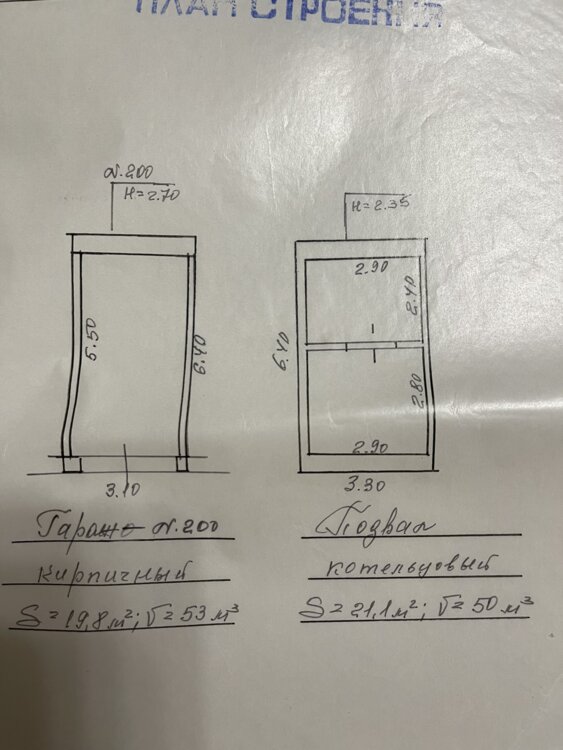 ПЛАН СТРОЕНИЯ
N.200
H=2.70
H=2.35
5.50
6.40
3.10
6.40
2.90
2.40
2.80
2.90
3.30
Гараж N.200
кирпичный
S=19,8м²; V=53м³
Подвал
котельцовый
S=21,1м²; V=50м³